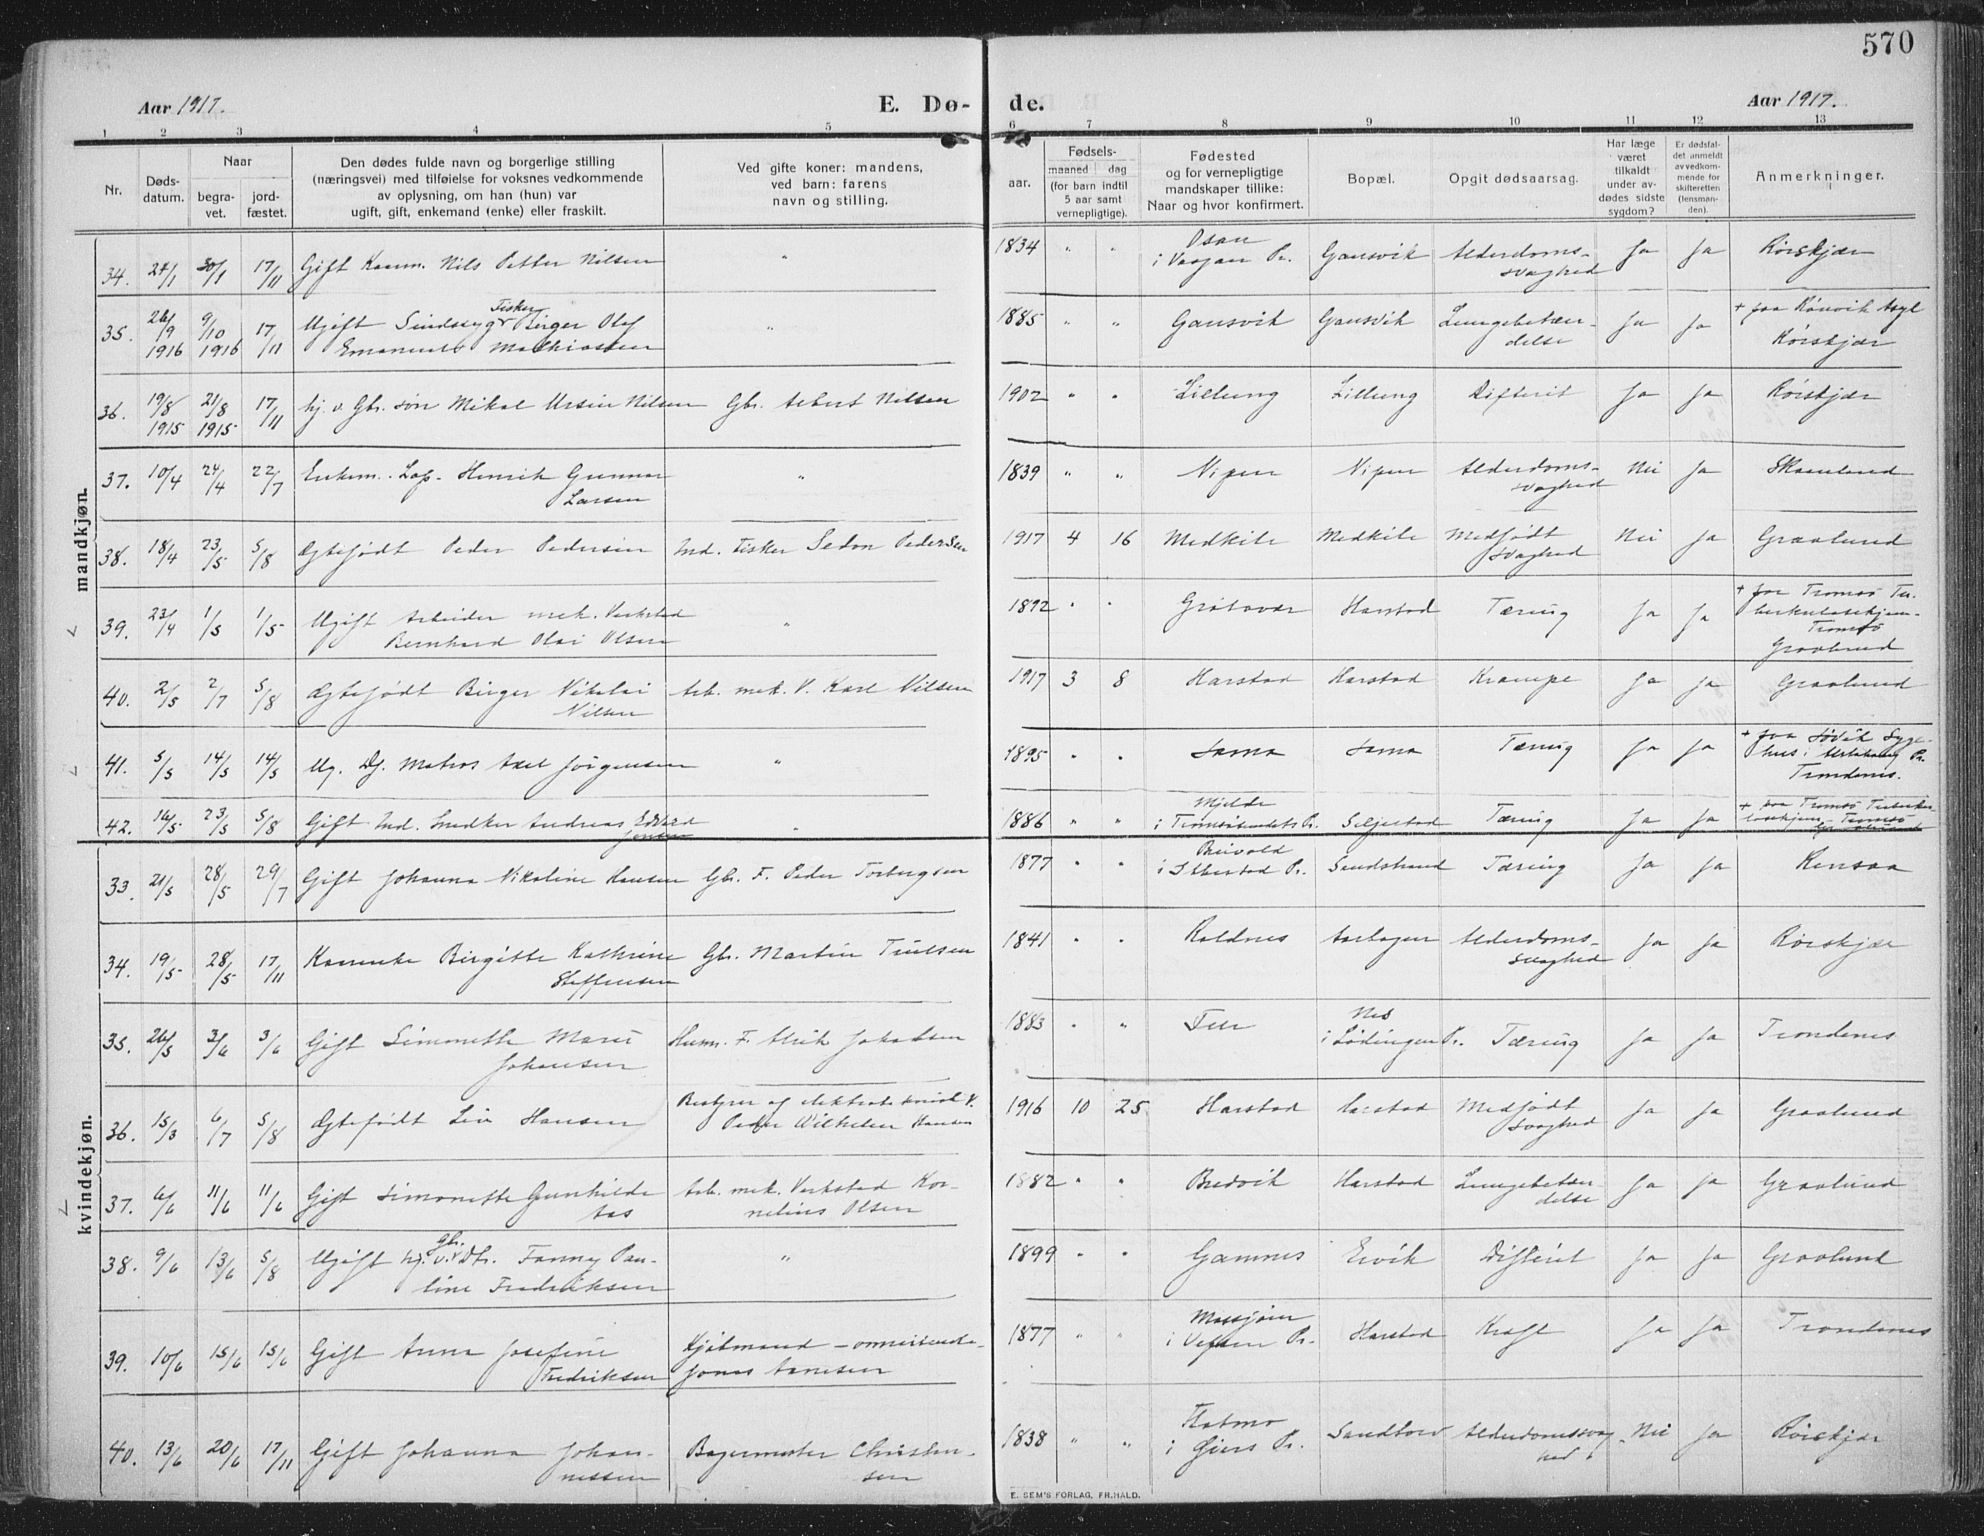 570
Aar 1917.
E. Dø-
de.
Aar 1917.
1 2 3 4 5 6 7 8 9 10 11 12 13
Nr.
Døds-
datum.
Naar
begra-
vet.
jord-
fæstet.
Den dødes fulde navn og borgerlige stilling
(næringsvei) med tilføielse for voksnes vedkommende
av oplysning, om han (hun) var
ugift, gift, enkemand (enke) eller fraskilt.
Ved gifte koner: mandens,
ved barn: farens
navn og stilling.
Fødsels-
aar.
maaned dag
(for barn indtil
5 aar samt
vernepligtige).
Fødested
og for vernepligtige
mandskaper tillike:
Naar og hvor konfirmert.
Bopæl.
Opgit dødsaarsag.
Har læge
været
tilkaldt
under av-
dødes sidste
sygdom?
Er dødsfal-
det anmeldt
av vedkom-
mende for
skifteretten
(lensman-
den).
Anmerkninger.
mandkjøn.
34. 24/1 30/1 17/11 Gift Kaarm. Nils Petter Nilsen " 1834 " " i Vaagan Pr. Gansvik Alderdoms-
svaghed Ja Ja Rørskjær
35. 26/9 1916 9/10 1916 17/11 Ugift Sindssyg Fisker Birger Olaf
Emanuel Mathiassen " 1885 " " Gansvik Gansvik Lungebetæn-
delse Ja Ja + paa Rønvik Asyl
Rørskjær
36. 19/8 1915 21/8 1915 17/11 hj. v. Gbr. søn Mikal Ursin Nilsen Gbr. Albert Nilsen 1902 " " Lillung Lillung Difterit Ja Ja Rørskjær
37. 10/4 24/4 22/7 Enkem. Lap. Henrik Gunnar
Larsen " 1839 " " Nipen Nipen Alderdoms-
svaghed Nei Ja Skaanland
38. 18/4 23/5 5/8 Ægtefødt Peder Pedersen Ind. Fisker Sedon Pedersen 1917 4 16 Medkile Medkile Medfødt
svaghed Nei Ja Graalund
39. 23/4 1/5 1/5 Ugift Arbeider mek. Verksted
Bernhard Olai Olsen " 1892 " " Grøtavær Harstad Tæring Ja Ja + paa Tromsø Tu-
berkulosehjem-
Tromsø
Graalund
40. 2/5 2/7 5/8 Ægtefødt Birger Nikolai
Nilsen Arb. mek. V. Karl Nilsen 1917 3 8 Harstad Harstad Krampe Ja Ja Graalund
41. 5/5 14/5 14/5 Ug. Dj. Matros Axel Jørgensen " 1895 " " Sama Sama Tæring Ja Ja + paa Søvik Syge-
hus i Alstahaug Pr.
Trondenes.
42. 16/5 23/5 5/8 Gift Ind. Snedker Andreas Edvard
Jensen " 1886 " " Mjelde
i Tromsøsundets Pr. Seljestad Tæring Ja Ja + paa Tromsø Tuberku
losehjem - Tromsø
kvindekjøn.
33. 21/5 28/5 29/7 Gift Johanna Nikoline Hansen Gbr. F. Peder Torbergsen 1877 " " i Ibbestad Pr. Sandstrand Tæring Ja Ja Rensaa
34. 19/5 28/5 17/11 Kaarenke Birgitte Kathrine
Steffensen Gbr. Martin Truelsen 1841 " " Roldnes Aarbogen Alderdoms-
svaghed Ja Ja Rørskjær
35. 26/5 3/6 3/6 Gift Simonette Marie
Johansen Husm. F. Alrik Jakobsen 1883 " " Nes
i Lødingen Pr. Tæring Ja Ja Trondenes
36. 15/3 6/7 5/8 Ægtefødt Liv Hansen Bestyrer
Peder Wilhelm Hansen 1916 10 25 Harstad Harstad Medfødt
svaghed Ja Ja Graalund
37. 6/6 11/6 11/6 Gift Simonette Gunhilde
Aas Arb. mek. Verksted Kor-
nelius Olsen 1882 " " Bredvik Harstad Lungebetæn-
delse Ja Ja Graalund
38. 9/6 13/6 5/8 Ugift hj. v. Gbr. Dtr. Fanny Pau-
line Fredriksen " 1899 " " Gamnes Ervik Difterit Ja Ja Graalund
39. 10/6 15/6 15/6 Gift Anna Josefine
Fredriksen Kjøbmand - omreisende-
Jonas Arnesen 1877 " " Mosjøen
i Vefsen Pr. Harstad Kræft Ja Ja Trondenes
40. 13/6 20/6 17/11 Gift Johanna Johan-
nessen Bagermester Christen-
sen 1838 " " i Giers Pr. Sandtorv Alderdomssvag
hed Nei Ja Rørskjær
E. SEM'S FORLAG, FR.HALD.